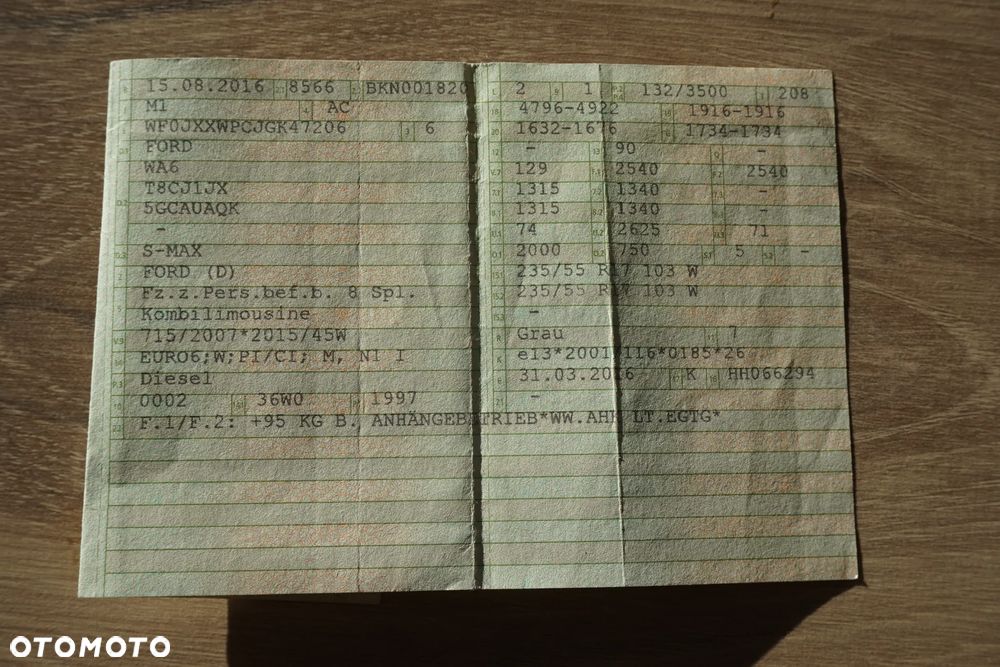 15.08.2016 8566 BKN001820
M1 AC
WF0JXXWPCJGK47206 6
FORD
WA6
T8CJ1JX
5GCAUAQK
-
S-MAX
FORD (D)
Fz.z.Pers.bef.b. 8 Spl.
Kombilimousine
715/2007*2015/45W
EURO6;W;PI/CI; M, N1 I
Diesel
0002 36W0 1997
F.1/F.2: +95 KG B. ANHÄNGEBETRIEB*WW.AHK LT.EGTG*
2 1 132/3500 208
4796-4922 1916-1916
1632-1676 1734-1734
- 90 -
129 2540 2540
1315 1340 -
1315 1340 -
74 2625 71
2000 750 5 -
235/55 R17 103 W
235/55 R17 103 W
-
Grau 7
e13*2001/116*0185*26
31.03.2016 K HH066294
-
OTOMOTO